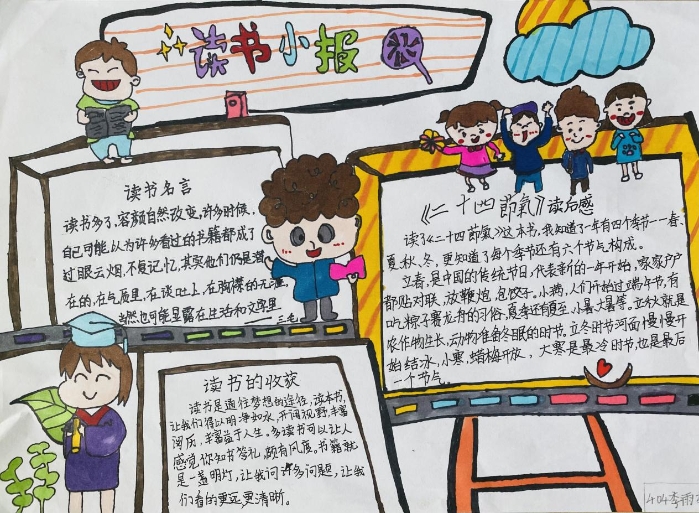 读书小报
读书名言
读书多了,容颜自然改变,许多时候,
自己可能以为许多看过的书籍都成了
过眼云烟,不复记忆,其实他们仍是潜
在的,在气质里,在谈吐上,在胸襟的无涯,
当然也可能显露在生活和文字里
——三毛
《二十四節氣》读后感
读了《二十四節氣》这本书,我知道了一年有四个季节——春、
夏、秋、冬,更知道了每个季节还有六个节气构成。
立春,是中国的传统节日,代表新的一年开始,家家户户
都贴对联、放鞭炮、包饺子。小满,人们开始过端午节,有
吃粽子赛龙舟的习俗,夏季还有夏至、小暑大暑等。立秋就是
农作物生长,动物准备冬眠的时节。立冬时节河面慢慢开
始结冰,小寒,蜡梅开放,大寒是最冷时节也是最后
一个节气
读书的收获
读书是通往梦想的途径,读本书,
让我们得以明净如水,开阔视野,丰富
阅历,丰富益于人生。多读书可以让人
感觉你知书答礼,颇有风度。书籍就
是一盏明灯,让我问许多问题,让我
们看的更远更清晰。
404李雨